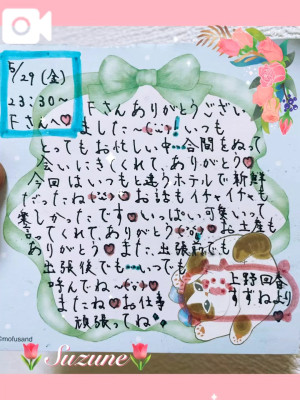 5/29(金)
23:30〜
Fさんへ♥
Fさんありがとうござい
ました〜!いつも
とってもお忙しい中…合間をぬって
会いにきてくれて、ありがとう♥
今回はいつもと違うホテルで新鮮
だったね♥お話もイチャイチャも
楽しかったです♥いっぱい可愛いって
言ってくれて、ありがとう♥お土産も
ありがとう♥また、出張前でも
出張後でも…いつでも
呼んでね〜♥
またね♥お仕事
頑張ってね!
上野回春
すずねより
©mofusand
Suzune